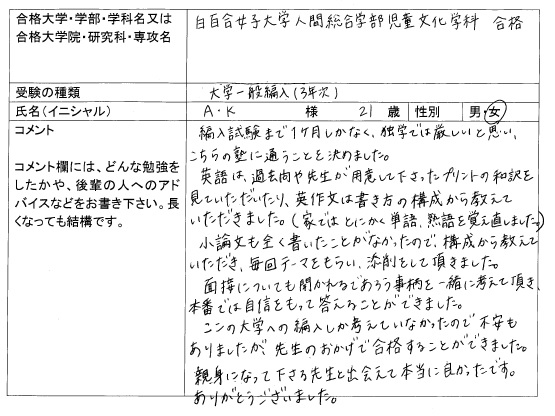 合格大学・学部・学科名又は
合格大学院・研究科・専攻名
白百合女子大学人間総合学部児童文化学科 合格
受験の種類
大学一般編入(3年次)
氏名(イニシャル)
A・K 様 21 歳 性別 男・女
コメント
コメント欄には、どんな勉強を
したかや、後輩の人へのアド
バイスなどをお書き下さい。長
くなっても結構です。
編入試験まで1ケ月しかなく、独学では厳しいと思い、
こちらの塾に通うことを決めました。
英語は、過去問や先生が用意して下さったプリントの和訳を
見ていただいたり、英作文は書き方の構成から教えて
いただきました。(家ではとにかく単語、熟語を覚え直しました。)
小論文も全く書いたことがなかったので、構成から教えて
いただき、毎回テーマをもらい、添削をして頂きました。
面接についても聞かれるであろう事柄を一緒に考えて頂き、
本番では自信をもって答えることができました。
ここの大学への編入しか考えていなかったので不安も
ありましたが、先生のおかげで合格することができました。
親身になって下さる先生と出会えて本当に良かったです。
ありがとうございました。